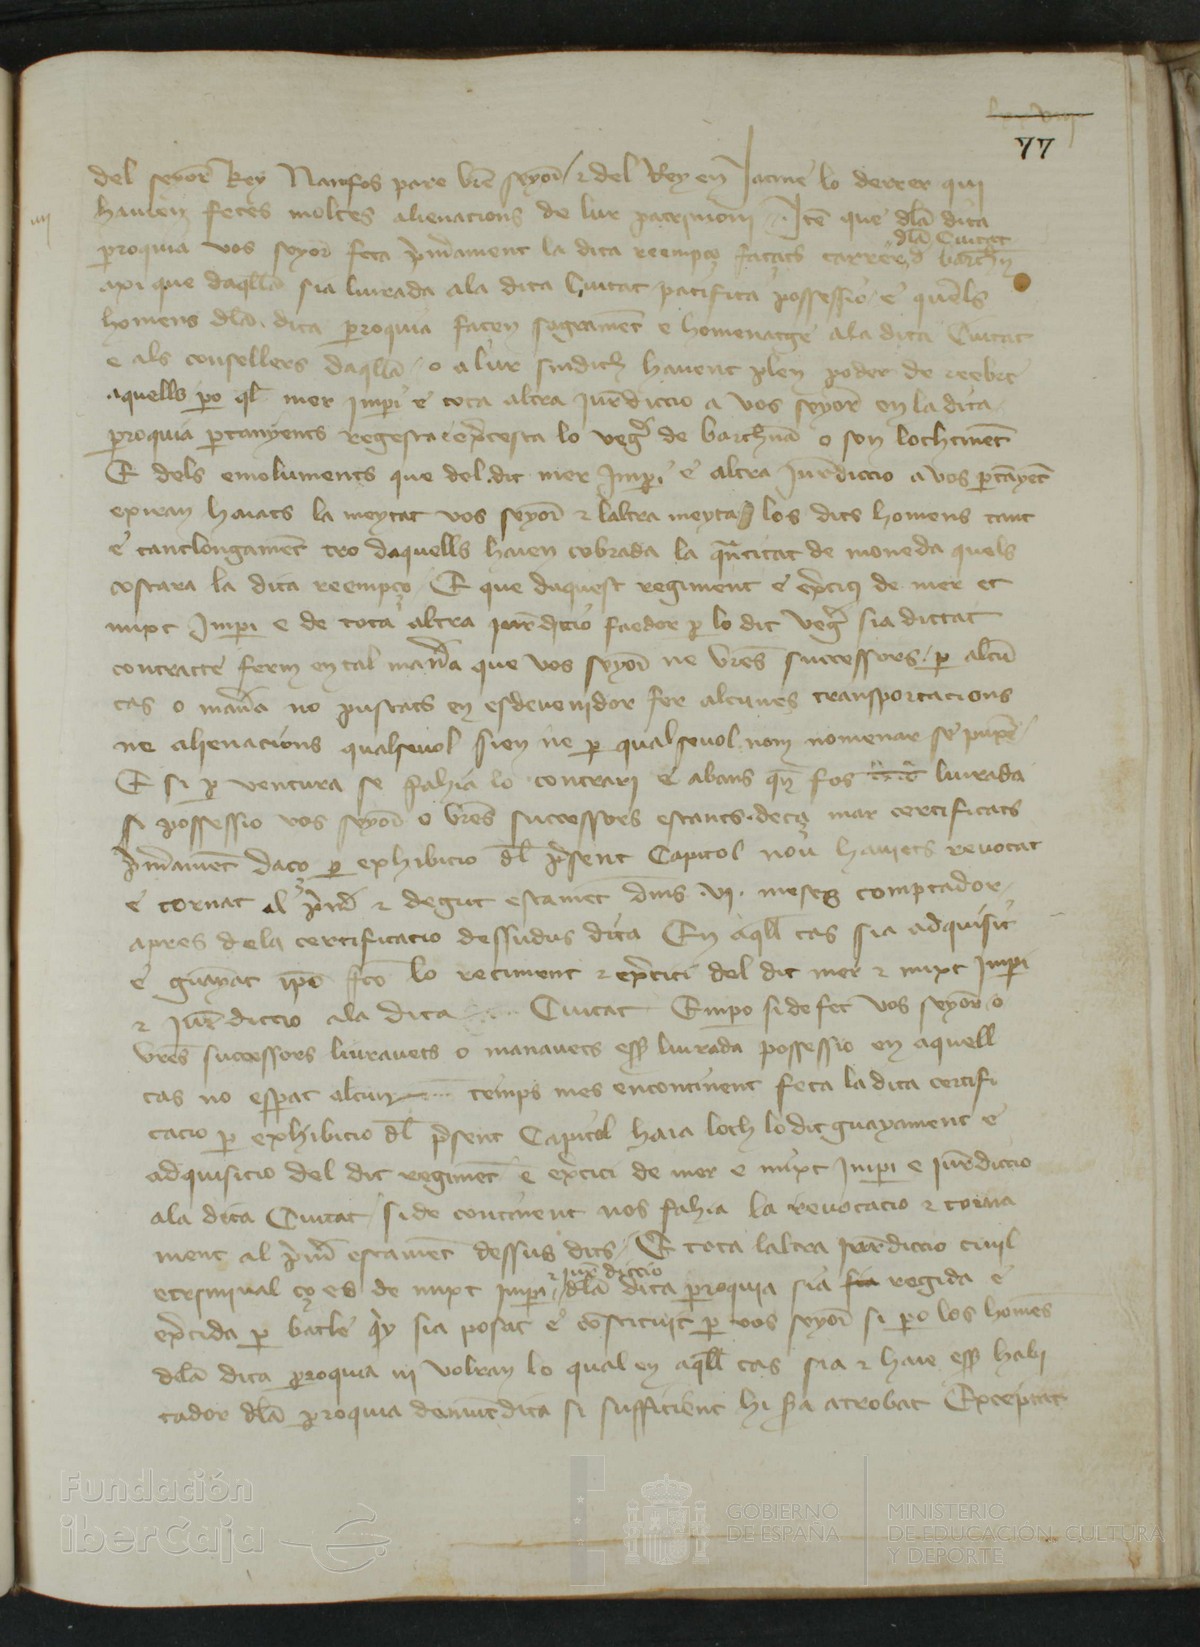 77
del senyor Rey Nanfos pare vre senyor / & del Rey en Jacme lo derrer qui
havien fetes moltes alienacions de lur patrimoni · Ite que dla dita
dla Ciutat
proquia vos senyor feta primament la dita reempço façats carrer d barchn
axi que daqlla sia liurada ala dita Ciutat pacifica possessio e quels
homens dla dita proquia facen sagrament e homenatge ala dita Ciutat
e als consellers daqlla o a lur sindich havent plen poder de reebre
aquells po ql mer Impi e tota altra Jurdiccio a vos senyor en la dita
proquia ptanyents regesca e excesca lo vegr de barchna o son lochtinet
E dels emoluments que del dit mer Impi e altra Jurdiccio a vos ptanyet
exiran haiats la meytat vos senyor & laltra meytat los dits homens tant
e tantlongamet tro daquells haien cobrada la qntitat de moneda quels
costara la dita reempço E que daquest regiment e exercici de mer et
mixt Impi e de tota altra jurdiccio faedor p lo dit vegr sia dictat
contracte ferm en tal mana que vos senyor ne vres successors p alcu
cas o mana no puscats en esdevenidor fer alcunes transportacions
ne alienacions qualsevol sien ne p qualsevol nom nomenar se puxe
E si p ventura se fahia lo contrari e abans qn fos liurada
possessio vos senyor o vres successors estants deça mar certificats
primamet daço p exhibicio dl present Capitol nou haviets revocat
e tornat al prim & degut estamet dins .VI. meses comptador
apres dela certificacio dessudus dita En aqll cas sia adquisit
e guanyat ipso fco lo regiment & exercici del dit mer & mixt Impi
& Jurdiccio ala dita Ciutat Empo si de fet vos senyor o
vres successors liuravets o manavets esser liurada possessio en aquell
cas no esperat alcun temps mes encontinent feta la dita certifi
cacio p exhibicio dl present Capitol haia loch lo dit guanyament e
adquisicio del dit regimet e exercici de mer e mixt Impi e Jurdiccio
ala dita Ciutat si de continent nos fahia la revocacio & torna
ment al prim estamet dessus dits / E tota laltra Jurdiccio civil
& jurdiccio
e criminal ço es de mixt Impi dla dita proquia sia regida e
exercida p batle qui sia posat e constituit p vos senyor si po los homes
dla dita proquia ni volran lo qual en aqll cas sia & haie esser habi
tador dla proquia demuntdita si sufficient hi sera atrobat Exceptat